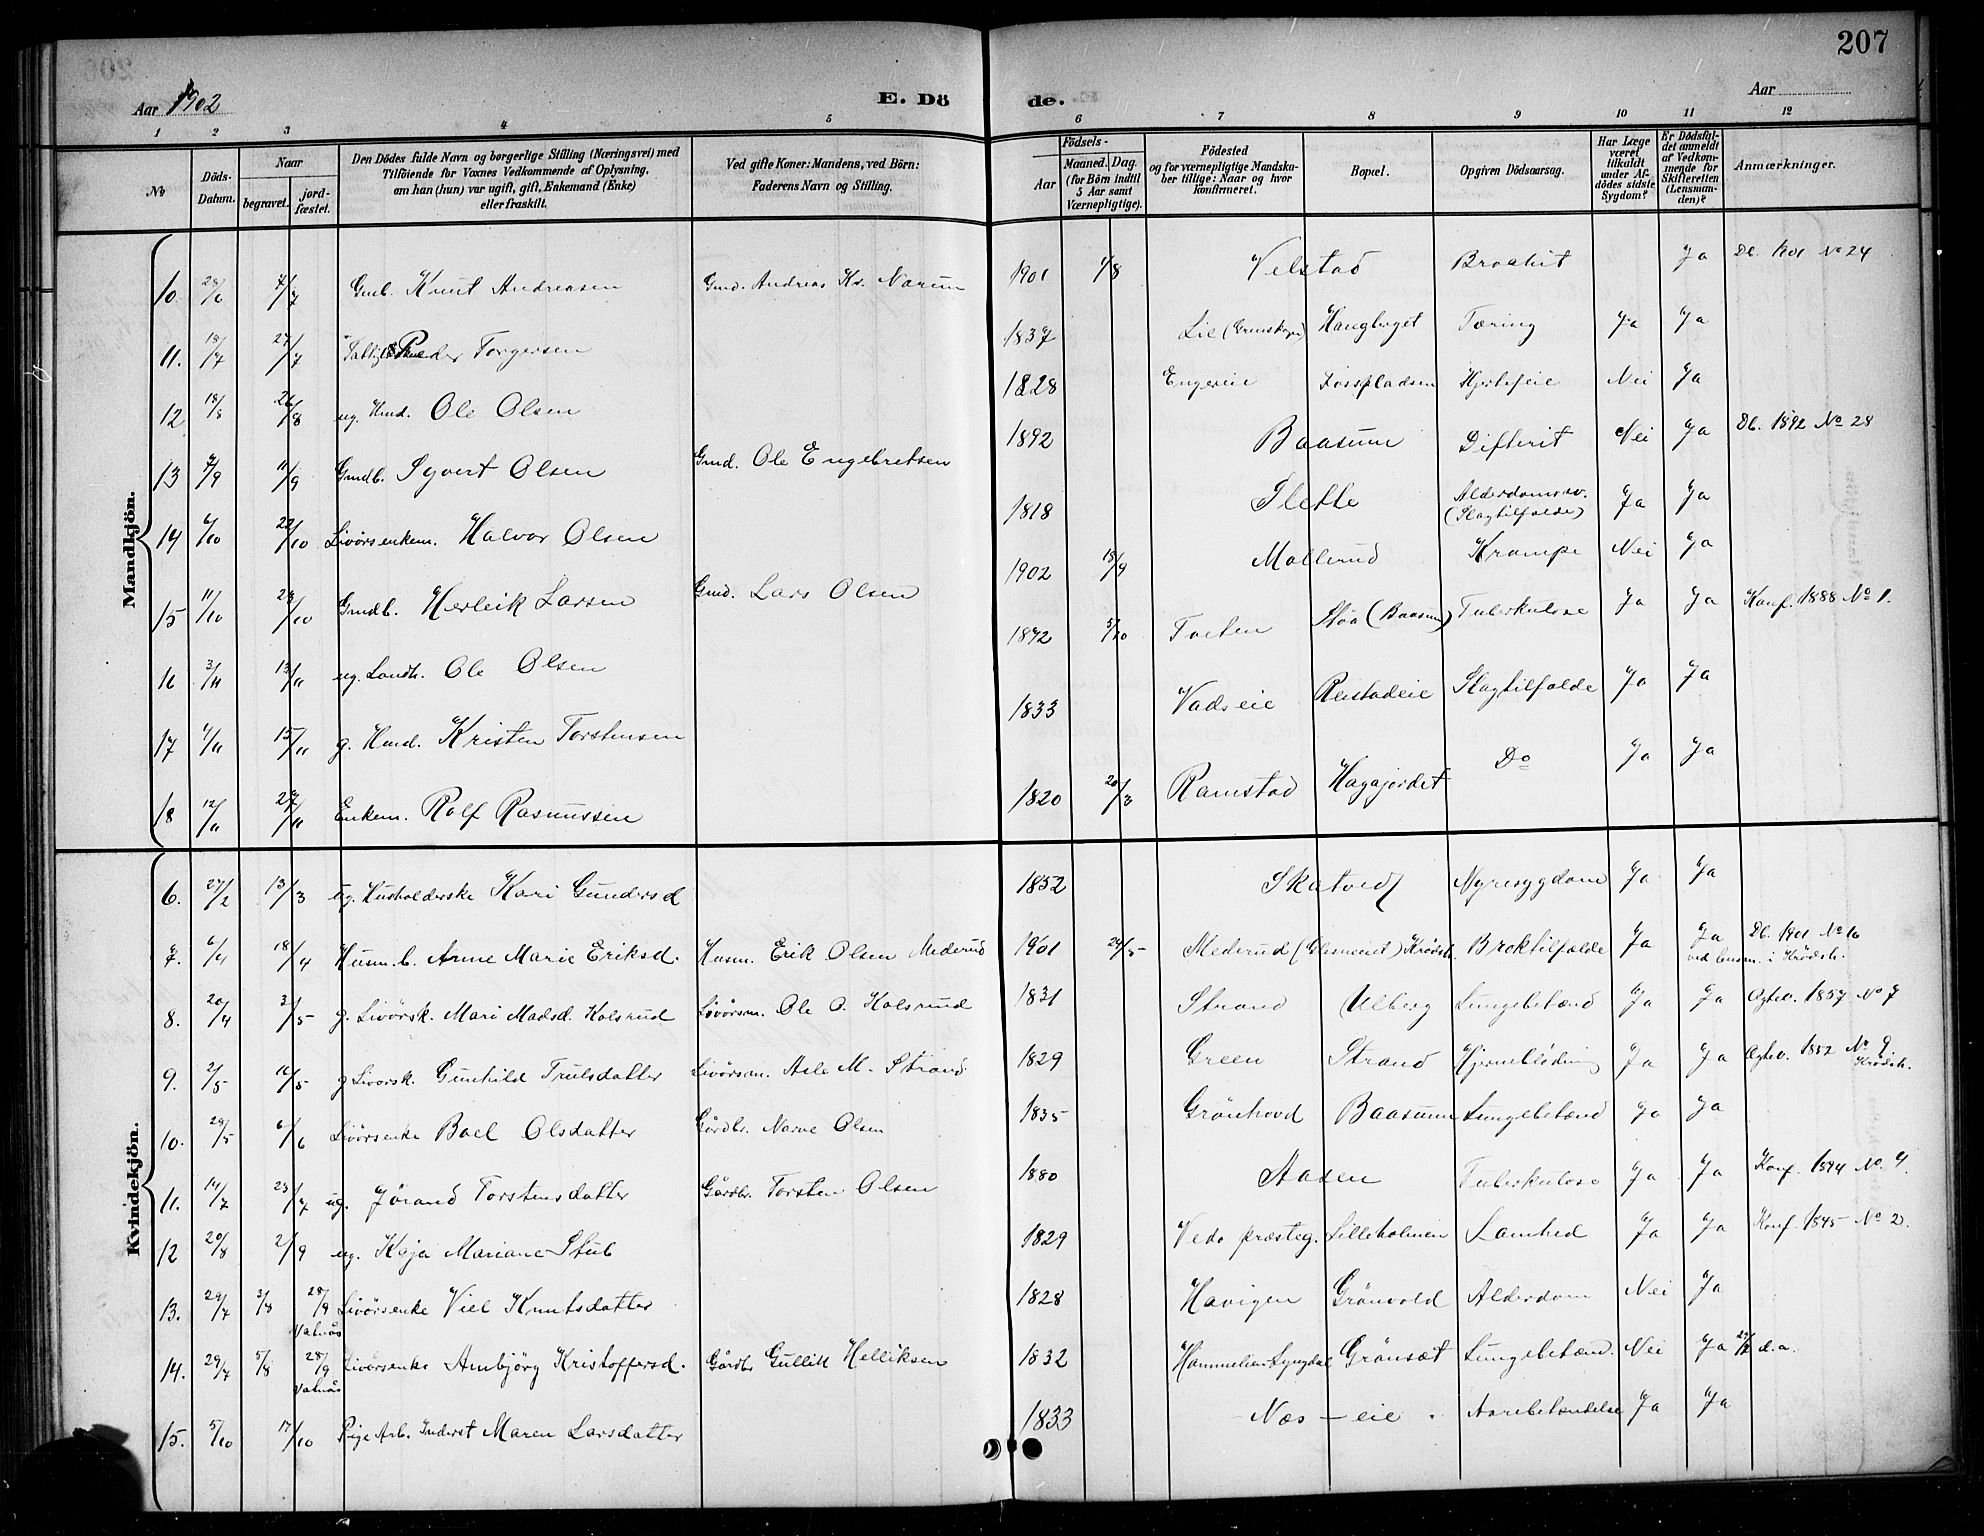 207
Aar 1902
E. Dö
de.
Aar
1 2 3 4 5 6 7 8 9 10 11 12
No
Döds-Datum.
Naar
begravet.
jord-fæstet.
Den Dödes fulde Navn og borgerlige Stilling (Næringsvei) med
Tilföiende for Voxnes Vedkommende af Oplysning,
om han (hun) var ugift, gift, Enkemand (Enke)
eller fraskilt.
Ved gifte Koner: Mandens, ved Börn:
Faderens Navn og Stilling.
Födsels-
Aar
Maaned. Dag.
(for Börn indtil
5 Aar samt
Værnepligtige).
Födested
og for værnepligtige Mandska-
ber tillige: Naar og hvor
konfirmeret.
Bopæl.
Opgiven Dödsaarsag.
Har Læge
været
tilkaldt
under Af-
dödes sidste
Sygdom?
Er Dödsfal-
det anmeldt
af Vedkom-
mende for
Skifteretten
(Lensman-
den)?
Anmærkninger.
Mandkjön.
10. 28/6 7/7 Gmb. Knut Andreasen Gmd. Andreas Kr. Narum 1901 1/8 Velstad Brakit Ja Db. 1901 No 24
11. 18/7 27/7 Peder Torgersen 1837 Lie Haugberget Tæring Ja Ja
12 18/8 26/8 ug. Hmd. Ole Olsen 1828 Engereie Fossepladsen Hjertefeie Nei Ja
13 7/9 11/9 Gmdb. Syvert Olsen Gmd. Ole Engebretsen 1892 Baasum Difterit Nei Ja Db. 1892 No 28
14 6/10 22/10 Livörsenkem. Halvor Olsen 1818 Slette Alderdomssv. (Slagtilfælde) Ja Ja
15 11/10 23/10 Gmdb. Herleik Larsen Gmd. Lars Olsen 1902 15/9 Mollerud Krampe Nei Ja
16 3/11 13/11 ug. Landh. Ole Olsen 1872 5/10 Toeten Stöa (Baasum) Tuberkulose Ja Ja Konf. 1888 No 1.
17 4/11 15/11 g. Hmd. Kristen Torstensen 1833 Vadseie Reistadeie Slagtilfælde Ja Ja
18 12/11 Enkem. Rolf Rasmussen 1820 20/3 Ramstad Hagajordet Do Ja Ja
Kvindekjön.
6. 27/2 13/3 ug. Husholderske Kari Gundersd 1852 Skatved Nyresygdom Ja Ja
7. 6/4 18/4 Husm. b. Anne Marie Eriksd. Husm. Erik Olsen Mederud 1901 24/5 Mederud (Glesneeiet) Krödsh. Broktilfælde Ja Ja ved lensm. i Krödsh. Db. 1901 No 16
8. 20/4 3/5 g. Livörsk. Mari Madsd. Kolsrud Livörsm. Ole O. Kolsrud 1831 Strand Ulberg Lungebetænd Ja Ja Ægtev. 1857 No 7
9. 2/5 16/5 g. Livörsk. Gunhild Trulsdatter Livörsm. Asle M. Strand 1829 Green Strand Hjerneblödning Ja Ja Ægtev. 1852 No 9. Krödsh.
10. 28/5 6/6 Livörsenke Boel Olsdatter Gårdbr. Narve Olsen 1835 Grönhovd Baasum Lungebetænd Ja Ja
11. 14/7 23/7 ug. Jörand Torstensdatter Gårdbr. Torsten Olsen 1880 Aasen Tuberkulose Ja Ja Konf. 1894 No. 4.
12 20/8 2/9 ug. Kaja Mariane Stub 1829 Vedø præsteg. Lilleholmen Lamhed Ja Ja Konf. 1845 No 2.
13. 29/7 3/8 28/9 Valnäs Livörsenke Viel Knutsdatter 1828 Havigen Grönvold Alderdom Nei Ja
14. 29/7 5/8 28/9 Valnäs Livörsenke Ambjörg Kristoffersd. Gårdb. Gullik Helliksen 1832 Lyngdal Grönsæt Lungebetænd. Nei Ja d.a.
15. 5/10 17/10 Pige Arb. Inderst Maren Larsdatter 1833 Næs-eie Aarebetændelse Ja Ja